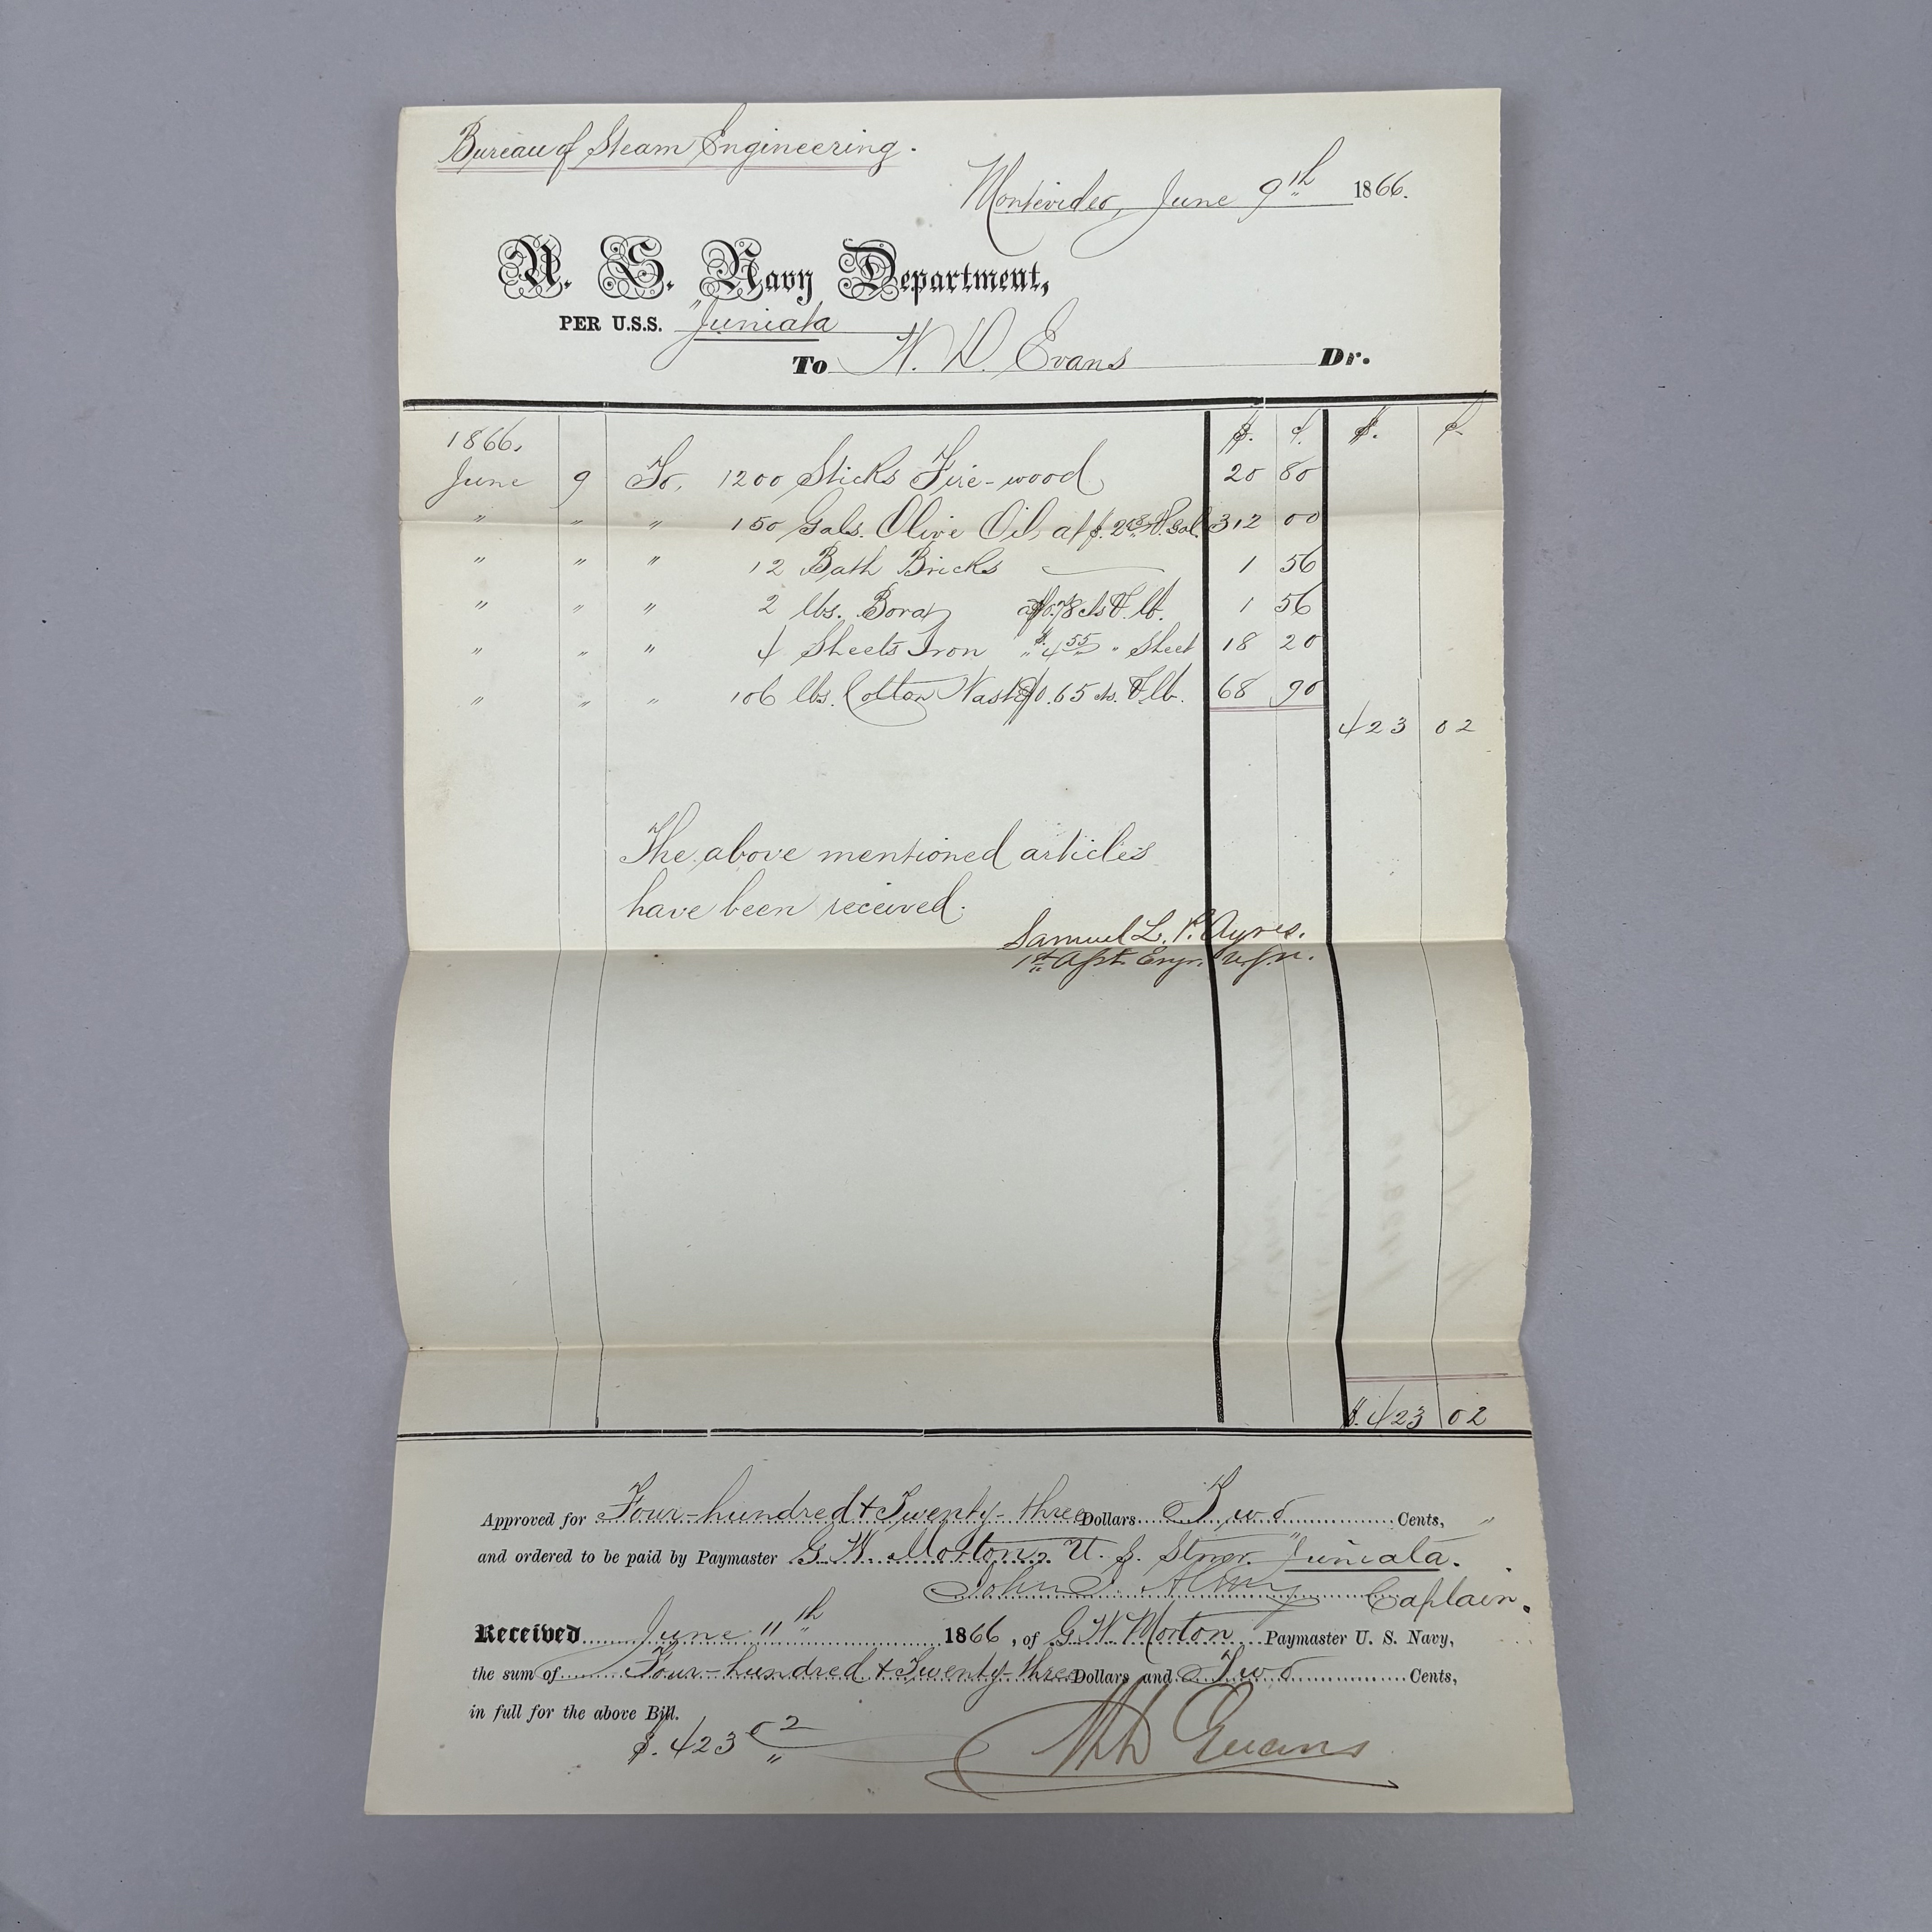 Bureau of Steam Engineering.
Montevideo, June 9th 1866.
U. S. Navy Department,
PER U.S.S. "Juniata"
To N. D. Evans Dr.
$. ¢. $. ¢.
1866.
June 9 To, 1200 Sticks Fire-wood 20 80
" " " 150 Gals. Olive Oil, at $.2.08 P. Gal. 312 00
" " " 12 Bath Bricks 1 56
" " " 2 lbs. Borax @ $0.78 cts P. lb. 1 56
" " " 4 Sheets Iron " $.4.55 " Sheet 18 20
" " " 106 lbs. Cotton Waste $0.65 cts. P lb. 68 90
423 02
The above mentioned articles
have been received.
Samuel L. P. Ayres.
1st Asst. Engr. U.S.N.
$.423 02
Approved for Four-hundred & Twenty-three Dollars Two Cents,
and ordered to be paid by Paymaster G. W. Morton, U. S. Stmr. "Juniata".
John J. Almy Captain.
Received June 11th 1866, of G. W. Morton Paymaster U. S. Navy,
the sum of Four-hundred & Twenty-three Dollars and Two Cents,
in full for the above Bill.
$.423 02 N D Evans